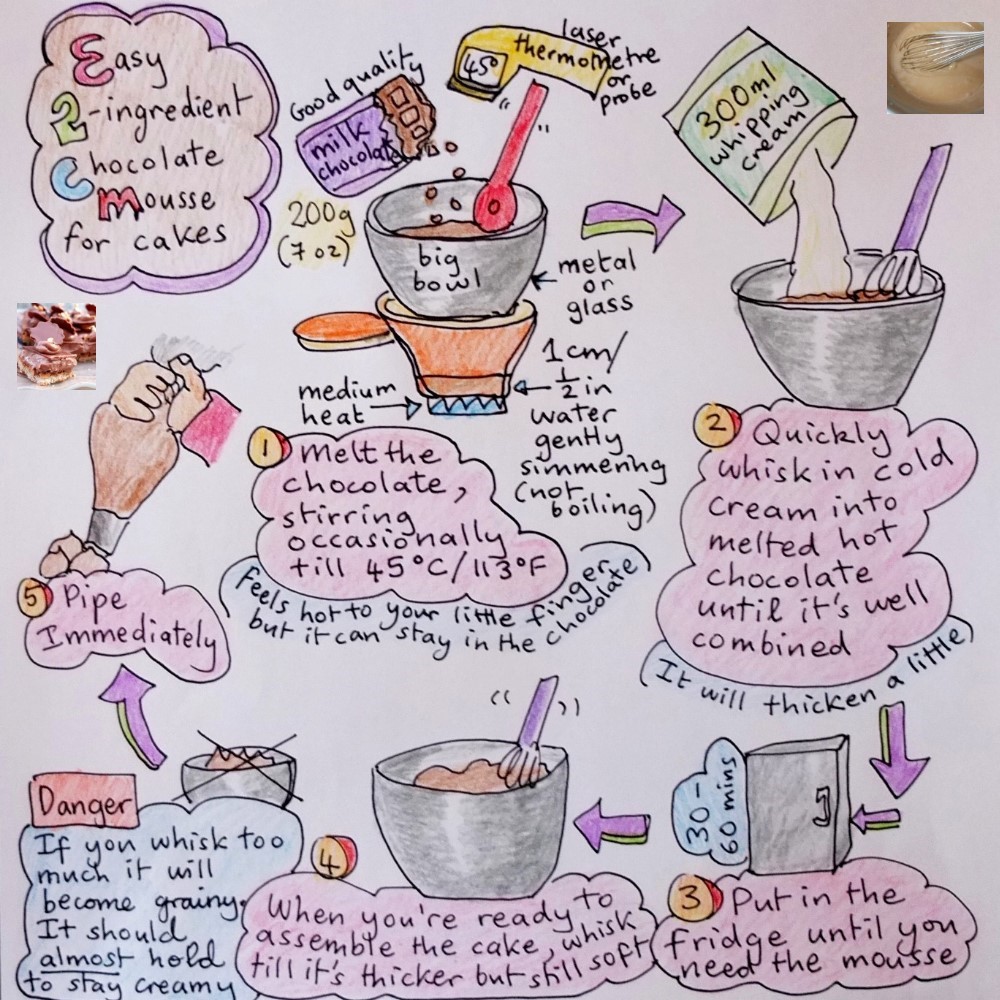 Easy
2-ingredient
Chocolate
Mousse
for cakes
Good quality
milk
chocolate
200g
(7 oz)
45°
laser
thermometre
or
probe
big
bowl
metal
or
glass
medium
heat
1cm/
1/2 in
water
gently
simmering
(not
boiling)
1 Melt the
chocolate,
stirring
occasionally
till 45°C/113°F
(Feels hot to your little finger
but it can stay in the chocolate)
300ml
whipping
cream
2 Quickly
whisk in cold
cream into
melted hot
chocolate
until it's well
combined
(It will thicken a little)
30-
60 mins
3 Put in the
fridge until you
need the mousse
4
When you're ready to
assemble the cake, whisk
till it's thicker but still soft
Danger
If you whisk too
much it will
become grainy.
It should
almost hold
to stay creamy
5 Pipe
Immediately